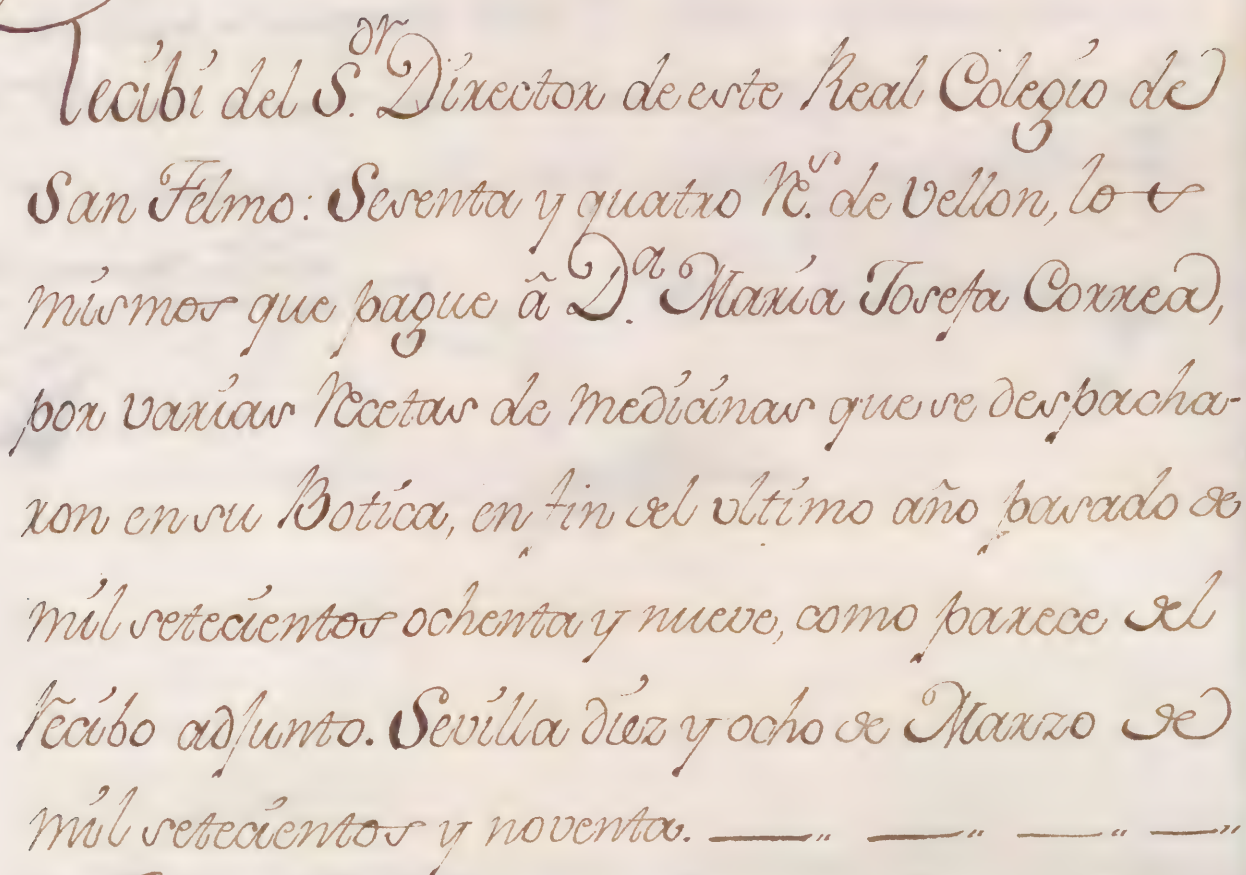 Recibi del S.or Director de este Real Colegio de
San Telmo: Sesenta y quatro R.s de Vellon, los
mismos que pague â D.a Maria Josefa Correa,
por varias Recetas de medicinas que se despacha-
ron en su Botica, en fin del ultimo año pasado de
mil setecientos ochenta y nueve, como parece del
Recibo adjunto. Sevilla diez y ocho de Marzo de
mil setecientos y noventa. —„ —„ —„ —„